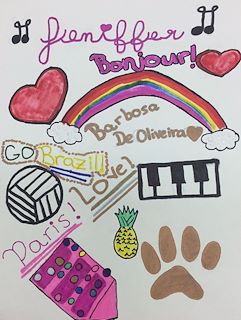 Jeniffer
Bonjour!
Barbosa
De Oliveira
GO Brazil!
Love!
Paris!